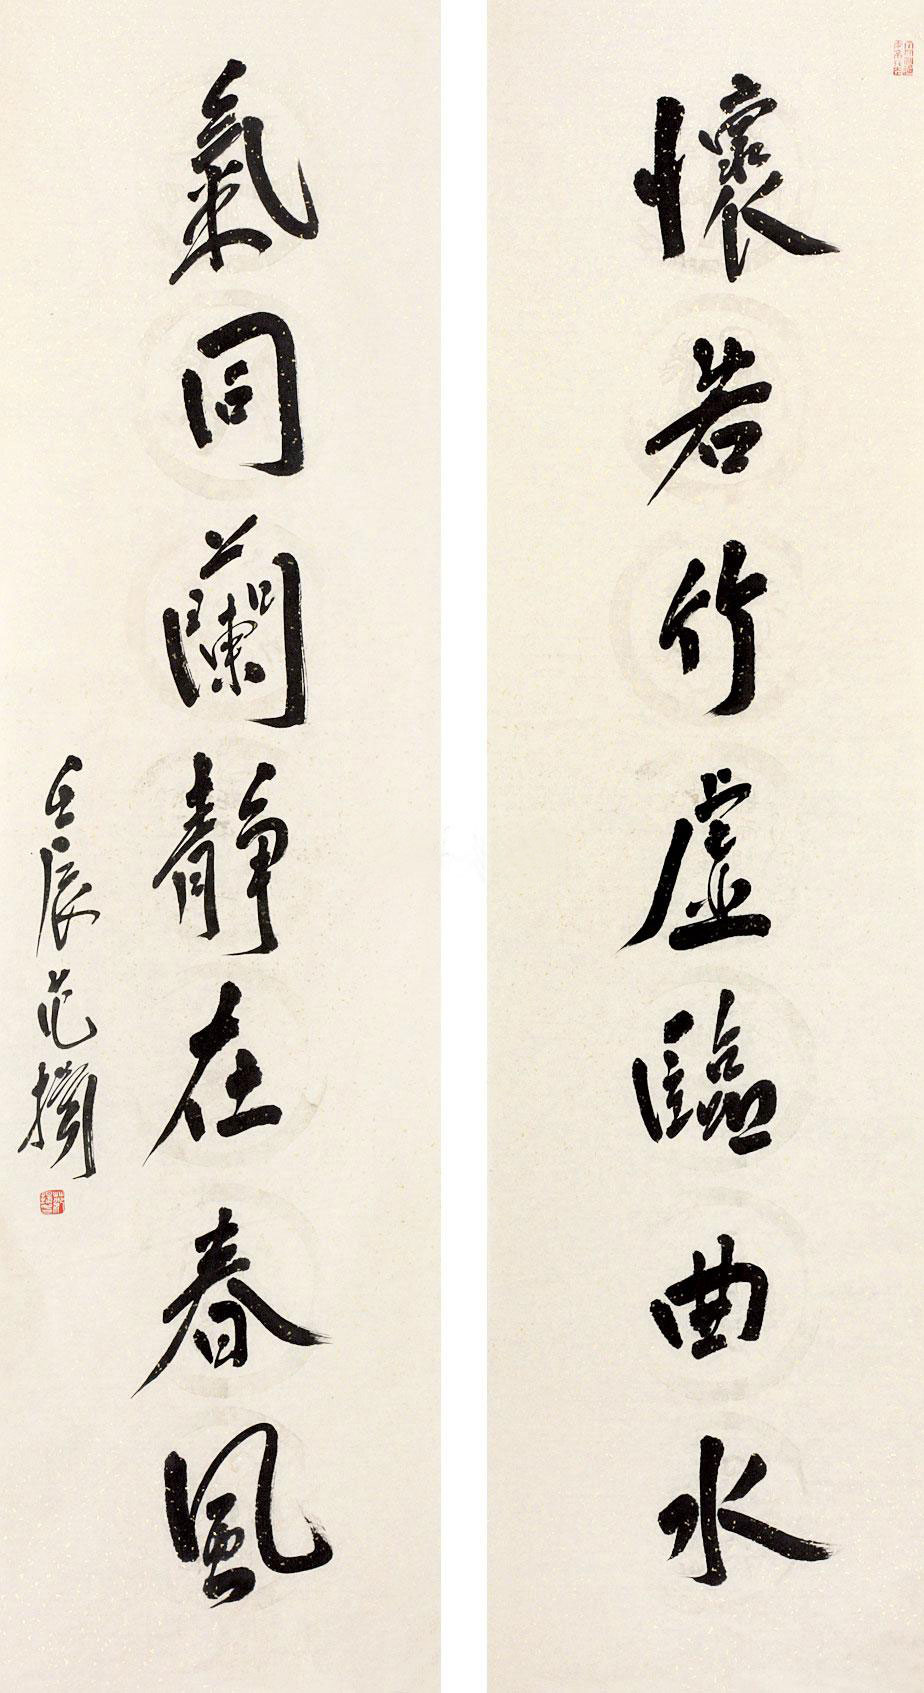 懷若竹虛臨曲水
氣同蘭靜在春風
壬辰范撝